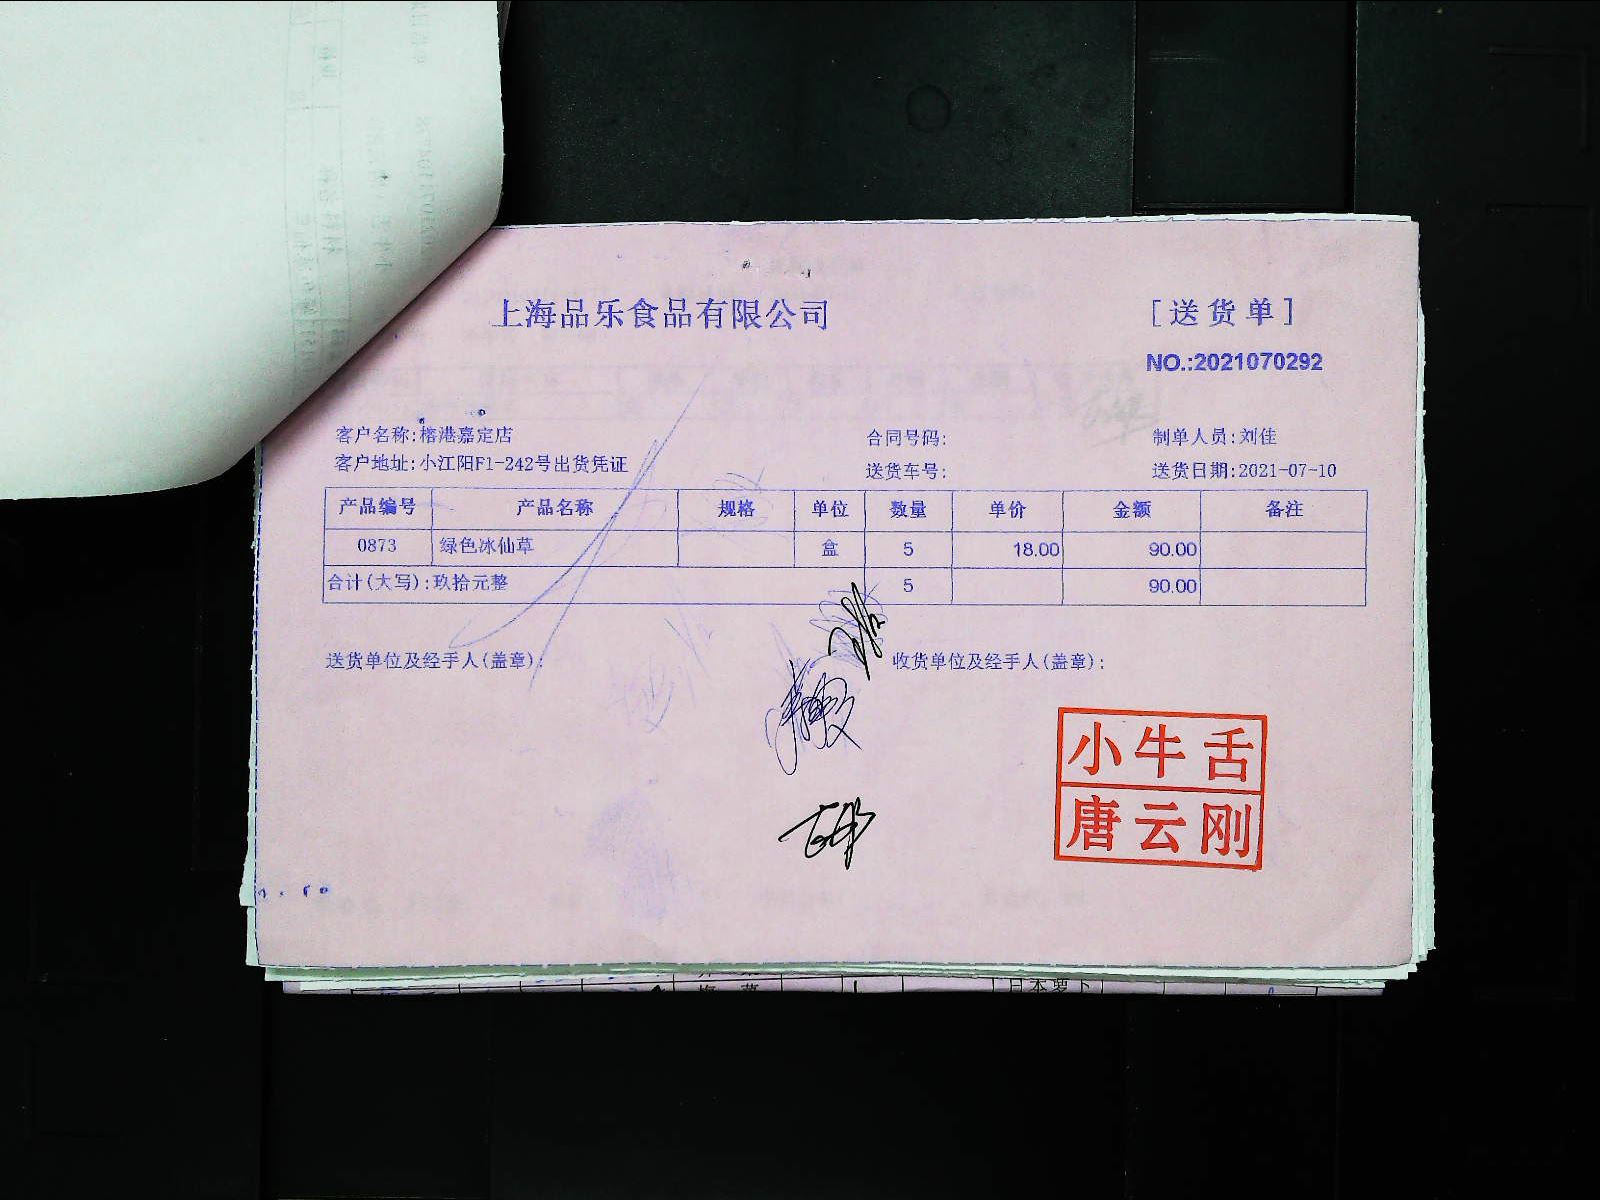 上海品乐食品有限公司
[送货单]
NO.:2021070292
客户名称:榕港嘉定店 合同号码: 制单人员:刘佳
客户地址:小江阳F1-242号出货凭证 送货车号: 送货日期:2021-07-10
产品编号 产品名称 规格 单位 数量 单价 金额 备注
0873 绿色冰仙草 盒 5 18.00 90.00
合计(大写):玖拾元整 5 90.00
送货单位及经手人(盖章): 收货单位及经手人(盖章):
小牛舌
唐云刚
日本萝卜